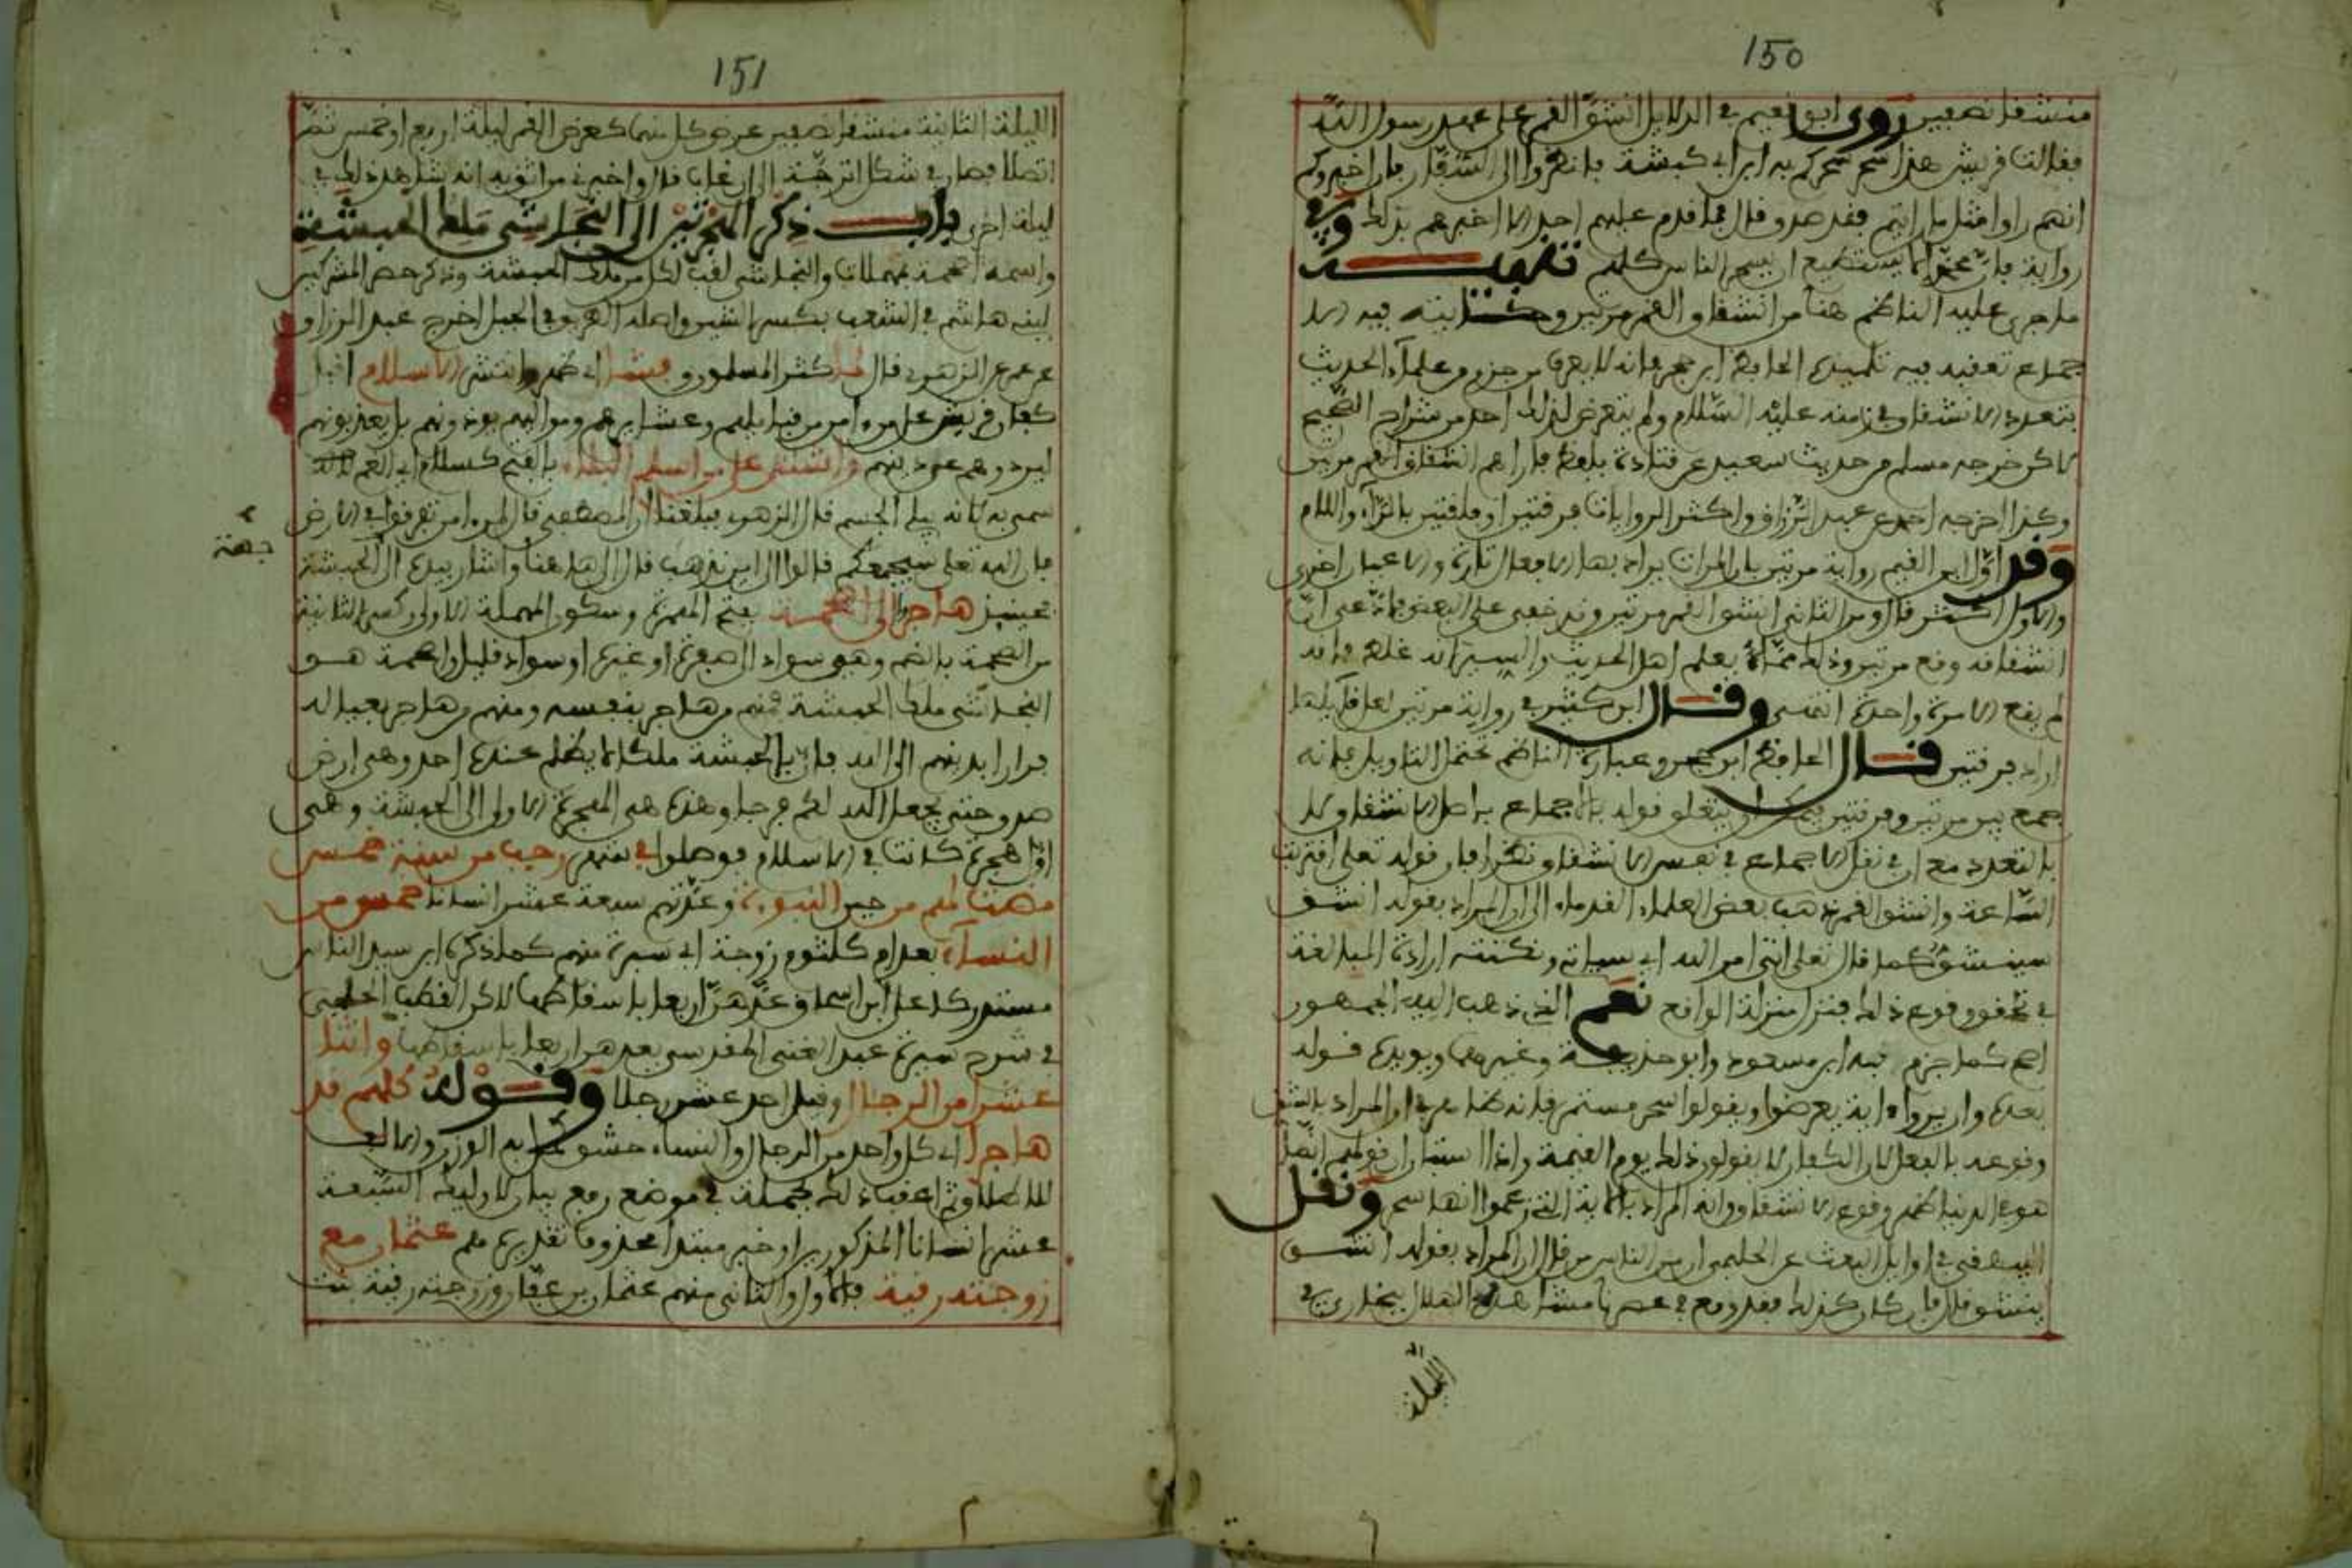 150
منشقا نصفين روى ابو نعيم في الدلايل انشق القمر على عهد رسول الله
فقالت قريش هذا سحر سحركم به ابن ابي كبشة فانظروا الى السفار فان اخبروكم
انهم راوا مثل ما رايتم فقد صدق قال فما قدم عليهم احد الا اخبرهم بذلك وفي
رواية فان محمدا لا يستطيع ان يسحر الناس كلهم تنبيه
ما جرى عليه الناظم هنا من انشقاق القمر مرتين وحكايته فيه الا
جماع تعقبه فيه تلميذه الحافظ ابن حجر فانه لا يعرف من جزم من علماء الحديث
بتعدد الانشقاق في زمنه عليه السلام ولم يتعرض لذلك احد من شراح الصحيح
لاكن خرجه مسلم من حديث سعيد عن قتادة بلفظ فاراهم انشقاق القمر مرتين
وكذا اخرجه احمد عن عبد الرزاق واكثر الروايات فرقتين او فلقتين بالراء واللام
وقد اول ابن القيم رواية مرتين بان المرات يراد بها الافعال تارة والاعيان اخرى
والاول اكثر قال ومن الثاني انشق القمر مرتين وقد خفي على البعض فادعى ان
انشقاقه وقع مرتين وذلك مما يعلم اهل الحديث والسير انه غلط فانه
لم يقع الا مرة واحدة انتهى وقال ابن كثير في رواية مرتين لعل قايلها
اراد فرقتين قال الحافظ ابن حجر وعبارة الناظم تحتمل التاويل فانه
جمع بين مرتين وفرقتين فيمكن ان يتعلق قوله بالاجماع باصل الانشقاق لا
بالتعدد مع ان في نقل الاجماع في نفس الانشقاق نظرا فان قوله تعلى اقتربت
الساعة وانشق القمر ذهب بعض العلماء القدماء الى ان المراد بقوله انشق
سينشق كما قال تعلى اتى امر الله اي سياتي ونكتته ارادة المبالغة
في تحقق وقوع ذلك فنزل منزلة الواقع نعم الذي ذهب اليه الجمهور
اصح كما جزم به ابن مسعود وابو حذيفة وغيرهما ويويده قوله
بعده وان يروا اية يعرضوا ويقولوا سحر مستمر فانه ظاهر في ان المراد بانشق
وقوعه بالفعل لان الكفار لا يقولون ذلك يوم القيمة واذا استبان ان قولهم انما
هو في الدنيا ظهر وقوع الانشقاق وانه المراد بالاية التي زعموا انها سحر ونقل
البيهقي في اوايل البعث عن الحليمي ان من الناس من قال ان المراد بقوله انشق
ينشق قال فان كان كذلك فقد وقع في عصرنا مشاهدة الهلال ببخارى في
الليلة
151
الليلة الثانية منشقا نصفين عرض كل منهما كعرض القمر ليلة اربع او خمس ثم
اتصلا فصار في شكل اترجة الى ان غاب قال واخبرني من اثق به انه شاهد ذلك في
ليلة اخرى باب ذكر الهجرتين الى النجاشي ملك الحبشة
واسمه اصحمة بمهملات والنجاشي لقب لكل من ملك الحبشة وذكر حصر المشركين
لبني هاشم في الشعب بكسر الشين واصله الطريق في الجبل اخرج عبد الرزاق
عن معمر عن الزهري قال لما كثر المسلمون وفشا اي ظهر وانتشر الاسلام اقبل
كفار قريش على من امن من قبايلهم وعشايرهم ومواليهم يوذونهم بل يعذبونهم
ليردوهم عن دينهم واشتد على من اسلم البلاء بالفتح كسلام اي الغم لانه
سمي به لانه يبلي الجسم قال الزهري فبلغنا ان المصطفى قال لمن امن تفرقوا في الارض
فان الله تعلى سيجمعكم قالوا الى اين نذهب قال الى هاهنا واشار بيده الى الحبشة
جهة
فحينئذ هاجروا الى اصحمة بفتح الهمزة وسكون المهملة الاولى وكسر الثانية
من الصحمة بالضم وهي سواد الى صفرة او غبرة او سواد قليل واصحمة هو
النجاشي ملك الحبشة فمنهم من هاجر بنفسه ومنهم من هاجر بعياله
فرارا بدينهم الى الله فان بالحبشة ملكا لا يظلم عنده احد وهي ارض
صدق حتى يجعل الله لكم فرجا وهذه هي الهجرة الاولى الى الحبشة وهي
اول هجرة كانت في الاسلام فوصلوا في شهر رجب من سنة خمس
مضت لهم من حين النبوءة وعدتهم سبعة عشر انسانا خمس من
النساء بعد ام كلثوم زوجة ابي سبرة منهم كما ذكره ابن سيد الناس
مستدركا على ابن اسحاق وعدهن اربعا باسقاطها لاكن القطب الحلبي
في شرح سيرة عبد الغني المقدسي بعدهن اربعا باسقاطها واثنا
عشر من الرجال وقيل احد عشر رجلا وقوله كلهم قد
هاجرا اي كل واحد من الرجال والنساء حشو كمل به الوزن والالف
للاطلاق ثم اعقب ذلك بجملة في موضع رفع بيان لاوليك السبعة
عشر انسانا المذكورين او خبر مبتدا محذوف تقديره هم عثمان مع
زوجته رقية فالاول والثاني منهم عثمان بن عفان وزوجته رقية بنت